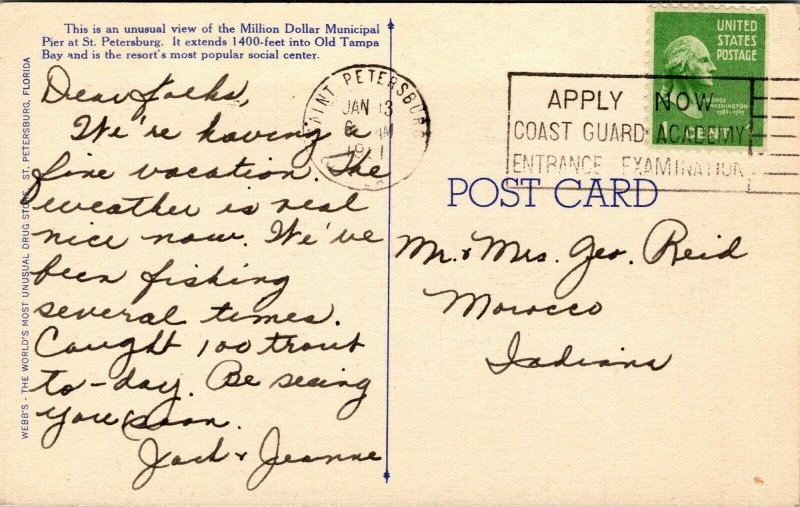 This is an unusual view of the Million Dollar Municipal
Pier at St. Petersburg. It extends 1400-feet into Old Tampa
Bay and is the resort's most popular social center.
WEBB'S - THE WORLD'S MOST UNUSUAL DRUG STORE, ST. PETERSBURG, FLORIDA
Dear folks,
We're having a
fine vacation. The
weather is real
nice now. We've
been fishing
several times.
Caught 100 trout
to-day. Be seeing
you soon.
Jack & Jeanne
SAINT PETERSBURG
JAN 13
APPLY NOW
COAST GUARD ACADEMY
ENTRANCE EXAMINATION
UNITED
STATES
POSTAGE
GEORGE
WASHINGTON
1789-1797
1 CENT
POST CARD
Mr. & Mrs. Geo. Reid
Morocco
Indiana